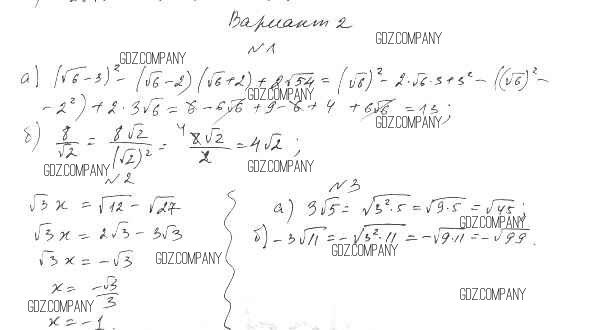 Вариант 2
GDZ.COMPANY
№1
GDZ.COMPANY
а) (√6 - 3)² - (√6 - 2)(√6 + 2) + 2√54 = (√6)² - 2·√6·3 + 3² - ((√6)² -
GDZ.COMPANY
- 2²) + 2·3√6 = 6 - 6√6 + 9 - 6 + 4 + 6√6 = 13;
GDZ.COMPANY
б) 8/√2 = 8√2/(√2)² = 4 8√2/2 = 4√2;
GDZ.COMPANY
GDZ.COMPANY
№2
√3 x = √12 - √27
√3 x = 2√3 - 3√3
√3 x = -√3
GDZ.COMPANY
x = -√3/3
GDZ.COMPANY
x = -1
№3
а) 3√5 = √3²·5 = √9·5 = √45;
GDZ.COMPANY
б) -3√11 = -√3²·11 = -√9·11 = -√99.
GDZ.COMPANY
GDZ.COMPANY